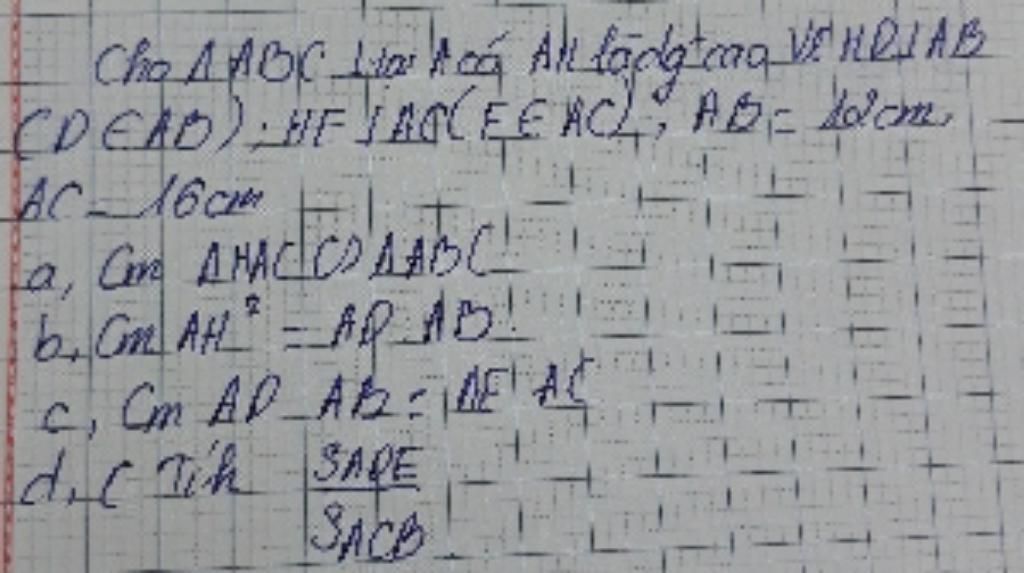 Cho ΔABC tại A có AH là đg cao Vẽ HD⊥AB
(D∈AB); HE⊥AC(E∈AC), AB= 12cm,
AC = 16cm
a, Cm ΔHAC ∽ ΔABC
b, Cm AH² = AD.AB
c, Cm AD.AB = AE.AC
d, Tíh SADE
SACB